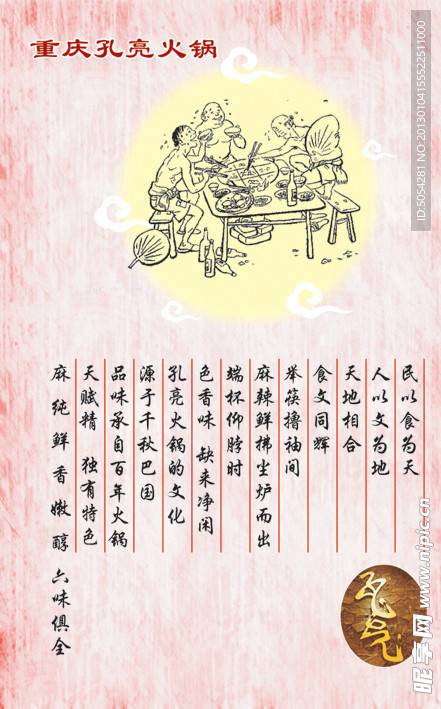 重庆孔亮火锅
民以食为天
人以文为地
天地相合
食文同辉
举筷撸袖间
麻辣鲜拂尘炉而出
端杯仰脖时
色香味 缺来净闲
孔亮火锅的文化
源于千秋巴国
品味承自百年火锅
天赋精 独有特色
麻 纯 鲜 香 嫩 醇 六味俱全
昵享网 www.nipic.cn
ID:5054281 NO:20130104155522511000